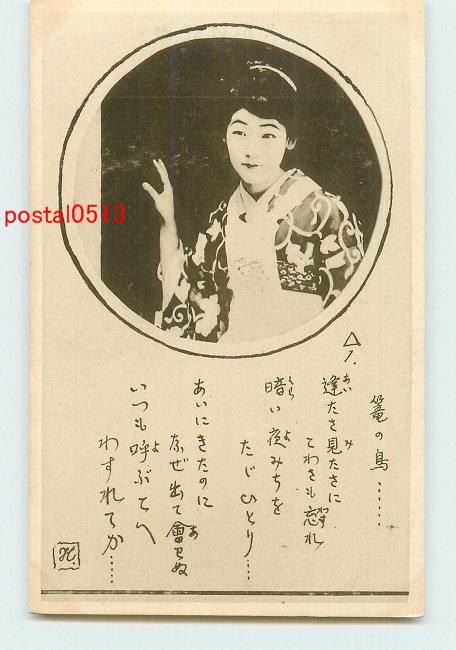 postal0513
篭の鳥……
△1.
逢たさ見たさに
こわさも忘れ
暗い夜みちを
たゞひとり…
あいにきたのに
なぜ出て會わぬ
いつも呼ぶこへ
わすれてか……